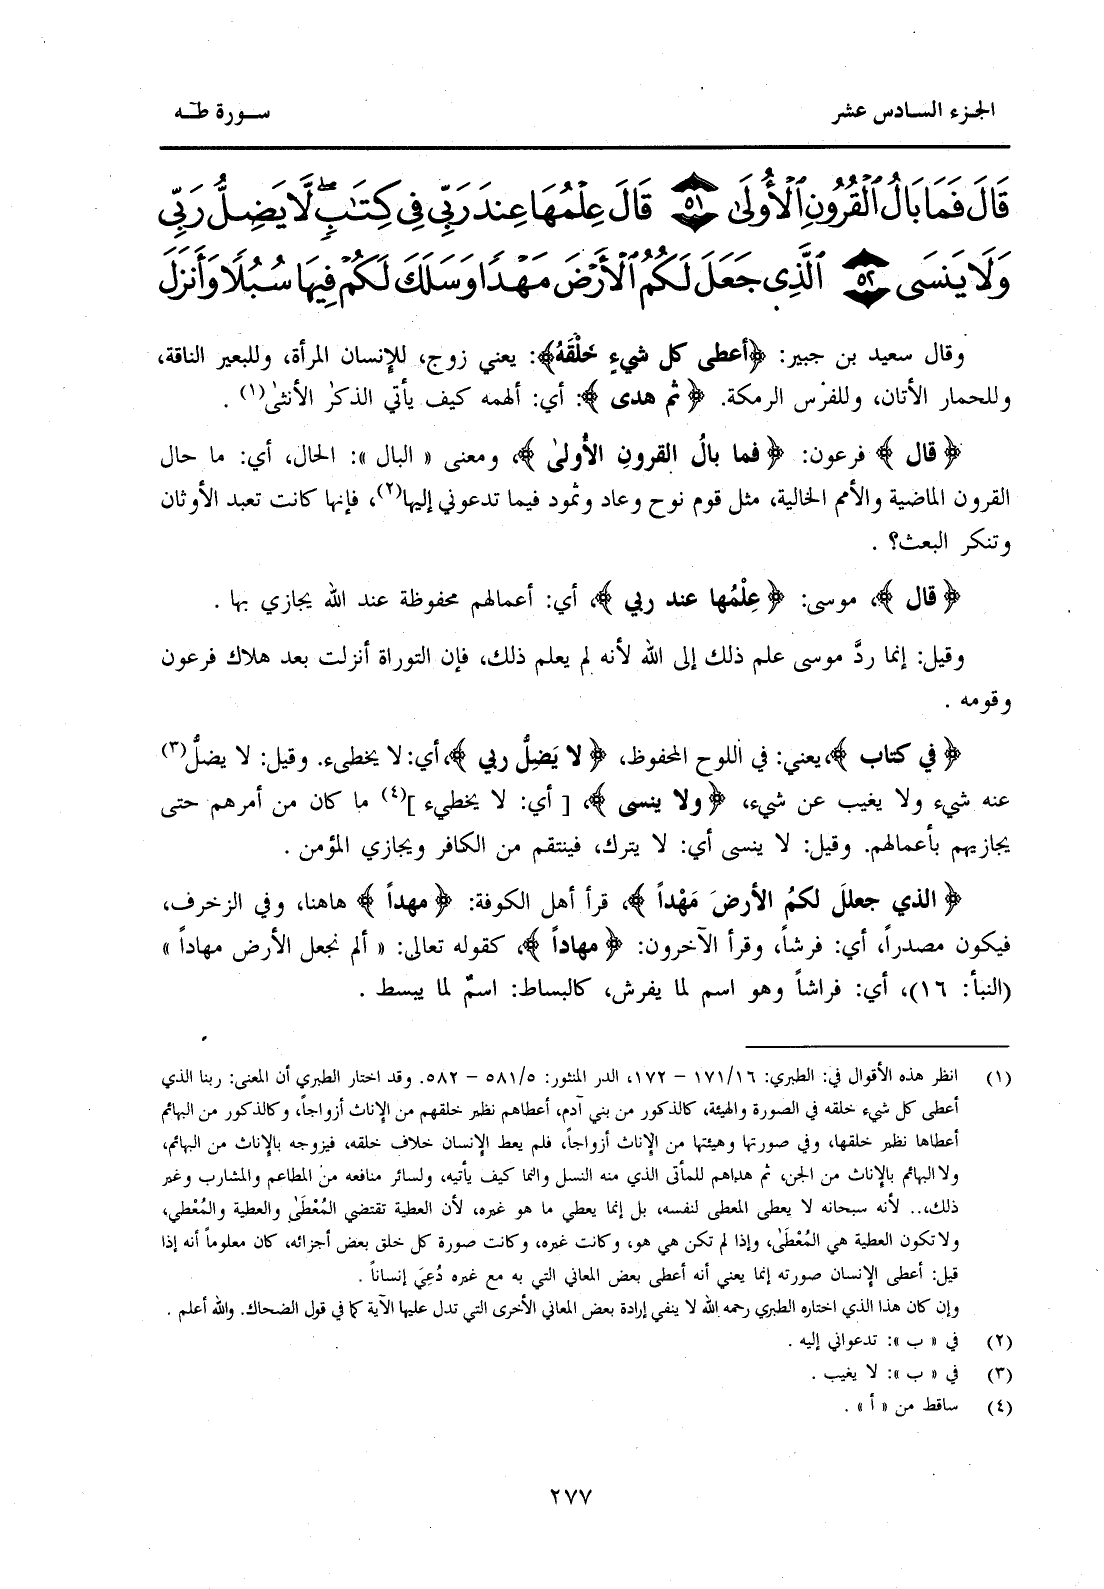 الجزء السادس عشر
سورة طه
قَالَ فَمَا بَالُ ٱلْقُرُونِ ٱلْأُولَىٰ ٥١ قَالَ عِلْمُهَا عِندَ رَبِّي فِي كِتَٰبٍ ۖ لَّا يَضِلُّ رَبِّي
وَلَا يَنسَى ٥٢ ٱلَّذِي جَعَلَ لَكُمُ ٱلْأَرْضَ مَهْدًا وَسَلَكَ لَكُمْ فِيهَا سُبُلًا وَأَنزَلَ
وقال سعيد بن جبير: ﴿أعطى كل شيءٍ خَلْقَهُ﴾: يعني زوج، للإنسان المرأة، وللبعير الناقة،
وللحمار الأتان، وللفرْس الرمكة. ﴿ ثم هدى ﴾: أي: ألهمه كيف يأتي الذكرُ الأنثىٰ(١) .
﴿ قال ﴾ فرعون: ﴿ فما بالُ القرونِ الأُولىٰ ﴾، ومعنى « البال »: الحال، أي: ما حال
القرون الماضية والأمم الخالية، مثل قوم نوح وعاد وثمود فيما تدعوني إليها(٢)، فإنها كانت تعبد الأوثان
وتنكر البعث؟ .
﴿ قال ﴾، موسى: ﴿ عِلْمُها عند ربي ﴾، أي: أعمالهم محفوظة عند الله يجازي بها .
وقيل: إنما ردَّ موسى علم ذلك إلى الله لأنه لم يعلم ذلك، فإن التوراة أنزلت بعد هلاك فرعون
وقومه .
﴿ في كتاب ﴾،يعني: في اللوح المحفوظ، ﴿ لا يَضِلُّ ربي ﴾،أي: لا يخطىء. وقيل: لا يضلُّ(٣)
عنه شيء ولا يغيب عن شيء، ﴿ ولا ينسى ﴾، [ أي: لا يخطيء ](٤) ما كان من أمرهم حتى
يجازيهم بأعمالهم. وقيل: لا ينسى أي: لا يترك، فينتقم من الكافر ويجازي المؤمن .
﴿ الذي جعللَ لكمُ الأرضَ مَهْداً ﴾، قرأ أهل الكوفة: ﴿ مهداً ﴾ هاهنا، وفي الزخرف،
فيكون مصدراً، أي: فرشاً، وقرأ الآخرون: ﴿ مهاداً ﴾، كقوله تعالى: « ألم نجعل الأرض مهاداً »
(النبأ: ١٦)، أي: فراشاً وهو اسم لما يفرش، كالبساط: اسمٌ لما يبسط .
(١) انظر هذه الأقوال في: الطبري: ١٧١/١٦ – ١٧٢، الدر المنثور: ٥٨١/٥ – ٥٨٢. وقد اختار الطبري أن المعنى: ربنا الذي
أعطى كل شيء خلقه في الصورة والهيئة، كالذكور من بني آدم، أعطاهم نظير خلقهم من الإناث أزواجاً، وكالذكور من البهائم
أعطاها نظير خلقها، وفي صورتها وهيئتها من الإناث أزواجاً، فلم يعط الإنسان خلاف خلقه، فيزوجه بالإناث من البهائم،
ولا البهائم بالإناث من الجن، ثم هداهم للمأتى الذي منه النسل والنما كيف يأتيه، ولسائر منافعه من المطاعم والمشارب وغير
ذلك،.. لأنه سبحانه لا يعطى المعطى لنفسه، بل إنما يعطي ما هو غيره، لأن العطية تقتضي المُعْطَىٰ والعطية والمُعْطي،
ولا تكون العطية هي المُعْطَىٰ، وإذا لم تكن هي هو، وكانت غيره، وكانت صورة كل خلق بعض أجزائه، كان معلوماً أنه إذا
قيل: أعطى الإنسان صورته إنما يعني أنه أعطى بعض المعاني التي به مع غيره دُعِيَ إنساناً .
وإن كان هذا الذي اختاره الطبري رحمه الله لا ينفي إرادة بعض المعاني الأخرى التي تدل عليها الآية كما في قول الضحاك. والله أعلم .
(٢) في « ب »: تدعواني إليه .
(٣) في « ب »: لا يغيب .
(٤) ساقط من « أ » .
٢٧٧